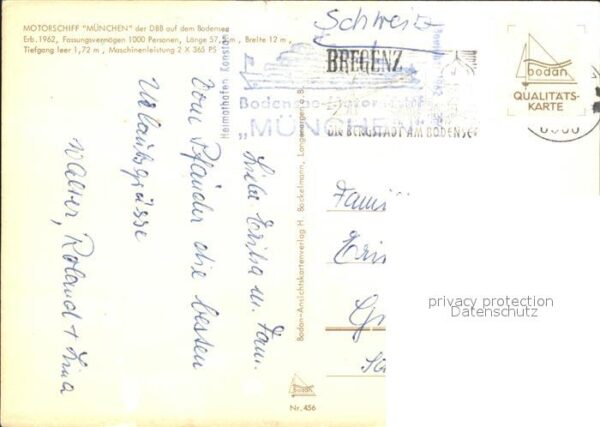 MOTORSCHIFF "MÜNCHEN" der DBB auf dem Bodensee
Erb. 1962, Fassungsvermögen 1000 Personen, Länge 57, m, Breite 12 m,
Tiefgang leer 1,72 m, Maschinenleistung 2 X 365 PS
Schweiz
BREGENZ
DIE BERGSTADT AM BODENSEE
Heimathafen Konstanz
Bodensee-Motorschiff
"MÜNCHEN"
bodan
QUALITÄTS-
KARTE
Liebe Erika u. Fam.
Vom Pfänder die besten
Urlaubsgrüsse
Walter, Roland +
Bodan-Ansichtskartenverlag H. Bockelmann, Langenargen a. B.
Fami
Eri
G
privacy protection
Datenschutz
bodan
Nr. 456